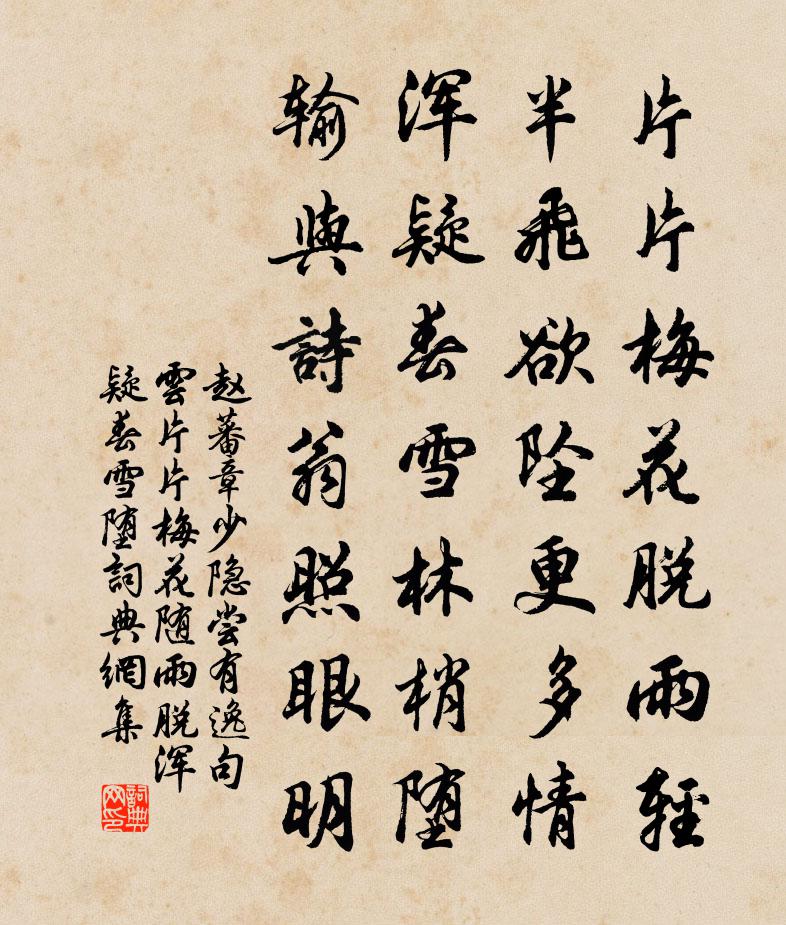 片片梅花脱雨輕
半飛欲坠更多情
浑疑春雪林梢堕
输與詩翁照眼明
赵蕃章少隐尝有逸句
雲片片梅花随雨脱浑
疑春雪堕詞典網集
詞典网印